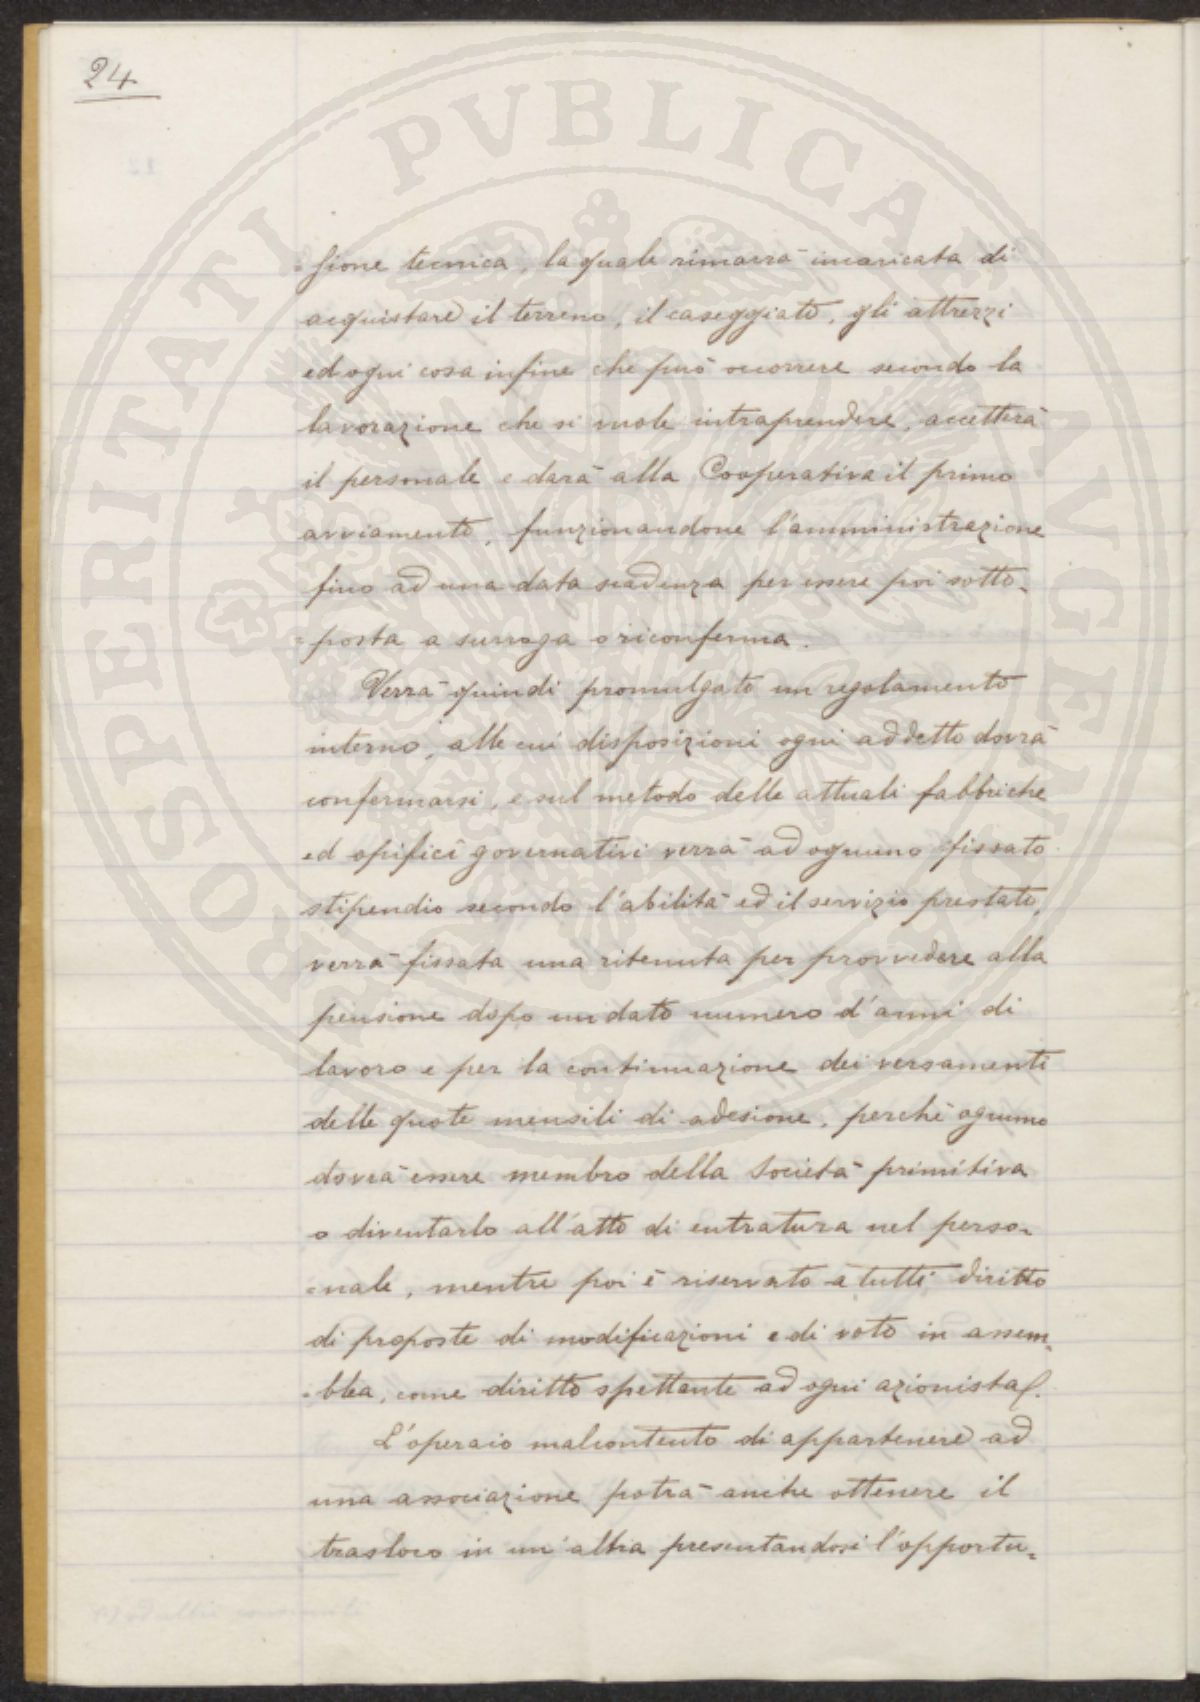 24
PVBLICAE
PROSPERITATI
AVGENDAE
=sione tecnica, la quale rimarrà incaricata di
acquistare il terreno, il caseggiato, gli attrezzi
ed ogni cosa infine che può occorrere secondo la
lavorazione che si vuole intraprendere, accetterà
il personale e darà alla Cooperativa il primo
avviamento, funzionandone l'amministrazione
fino ad una data scadenza per essere poi sotto=
=posta a surroga o riconferma.
Verrà quindi promulgato un regolamento
interno, alle cui disposizioni ogni addetto dovrà
confermarsi, e sul metodo delle attuali fabbriche
ed opifici governativi verrà ad ognuno fissato
stipendio secondo l'abilità ed il servizio prestato,
verrà fissata una ritenuta per provvedere alla
pensione dopo un dato numero d'anni di
lavoro e per la continuazione dei versamenti
delle quote mensili di adesione, perchè ognuno
dovrà essere membro della Società primitiva
o diventarlo all'atto di entratura nel perso=
=nale, mentre poi è riservato a tutti diritto
di proposte di modificazioni e di voto in assem=
=blea, come diritto spettante ad ogni azionista.
L'operaio malcontento di appartenere ad
una associazione potrà anche ottenere il
trasloco in un'altra presentandosi l'opportu=